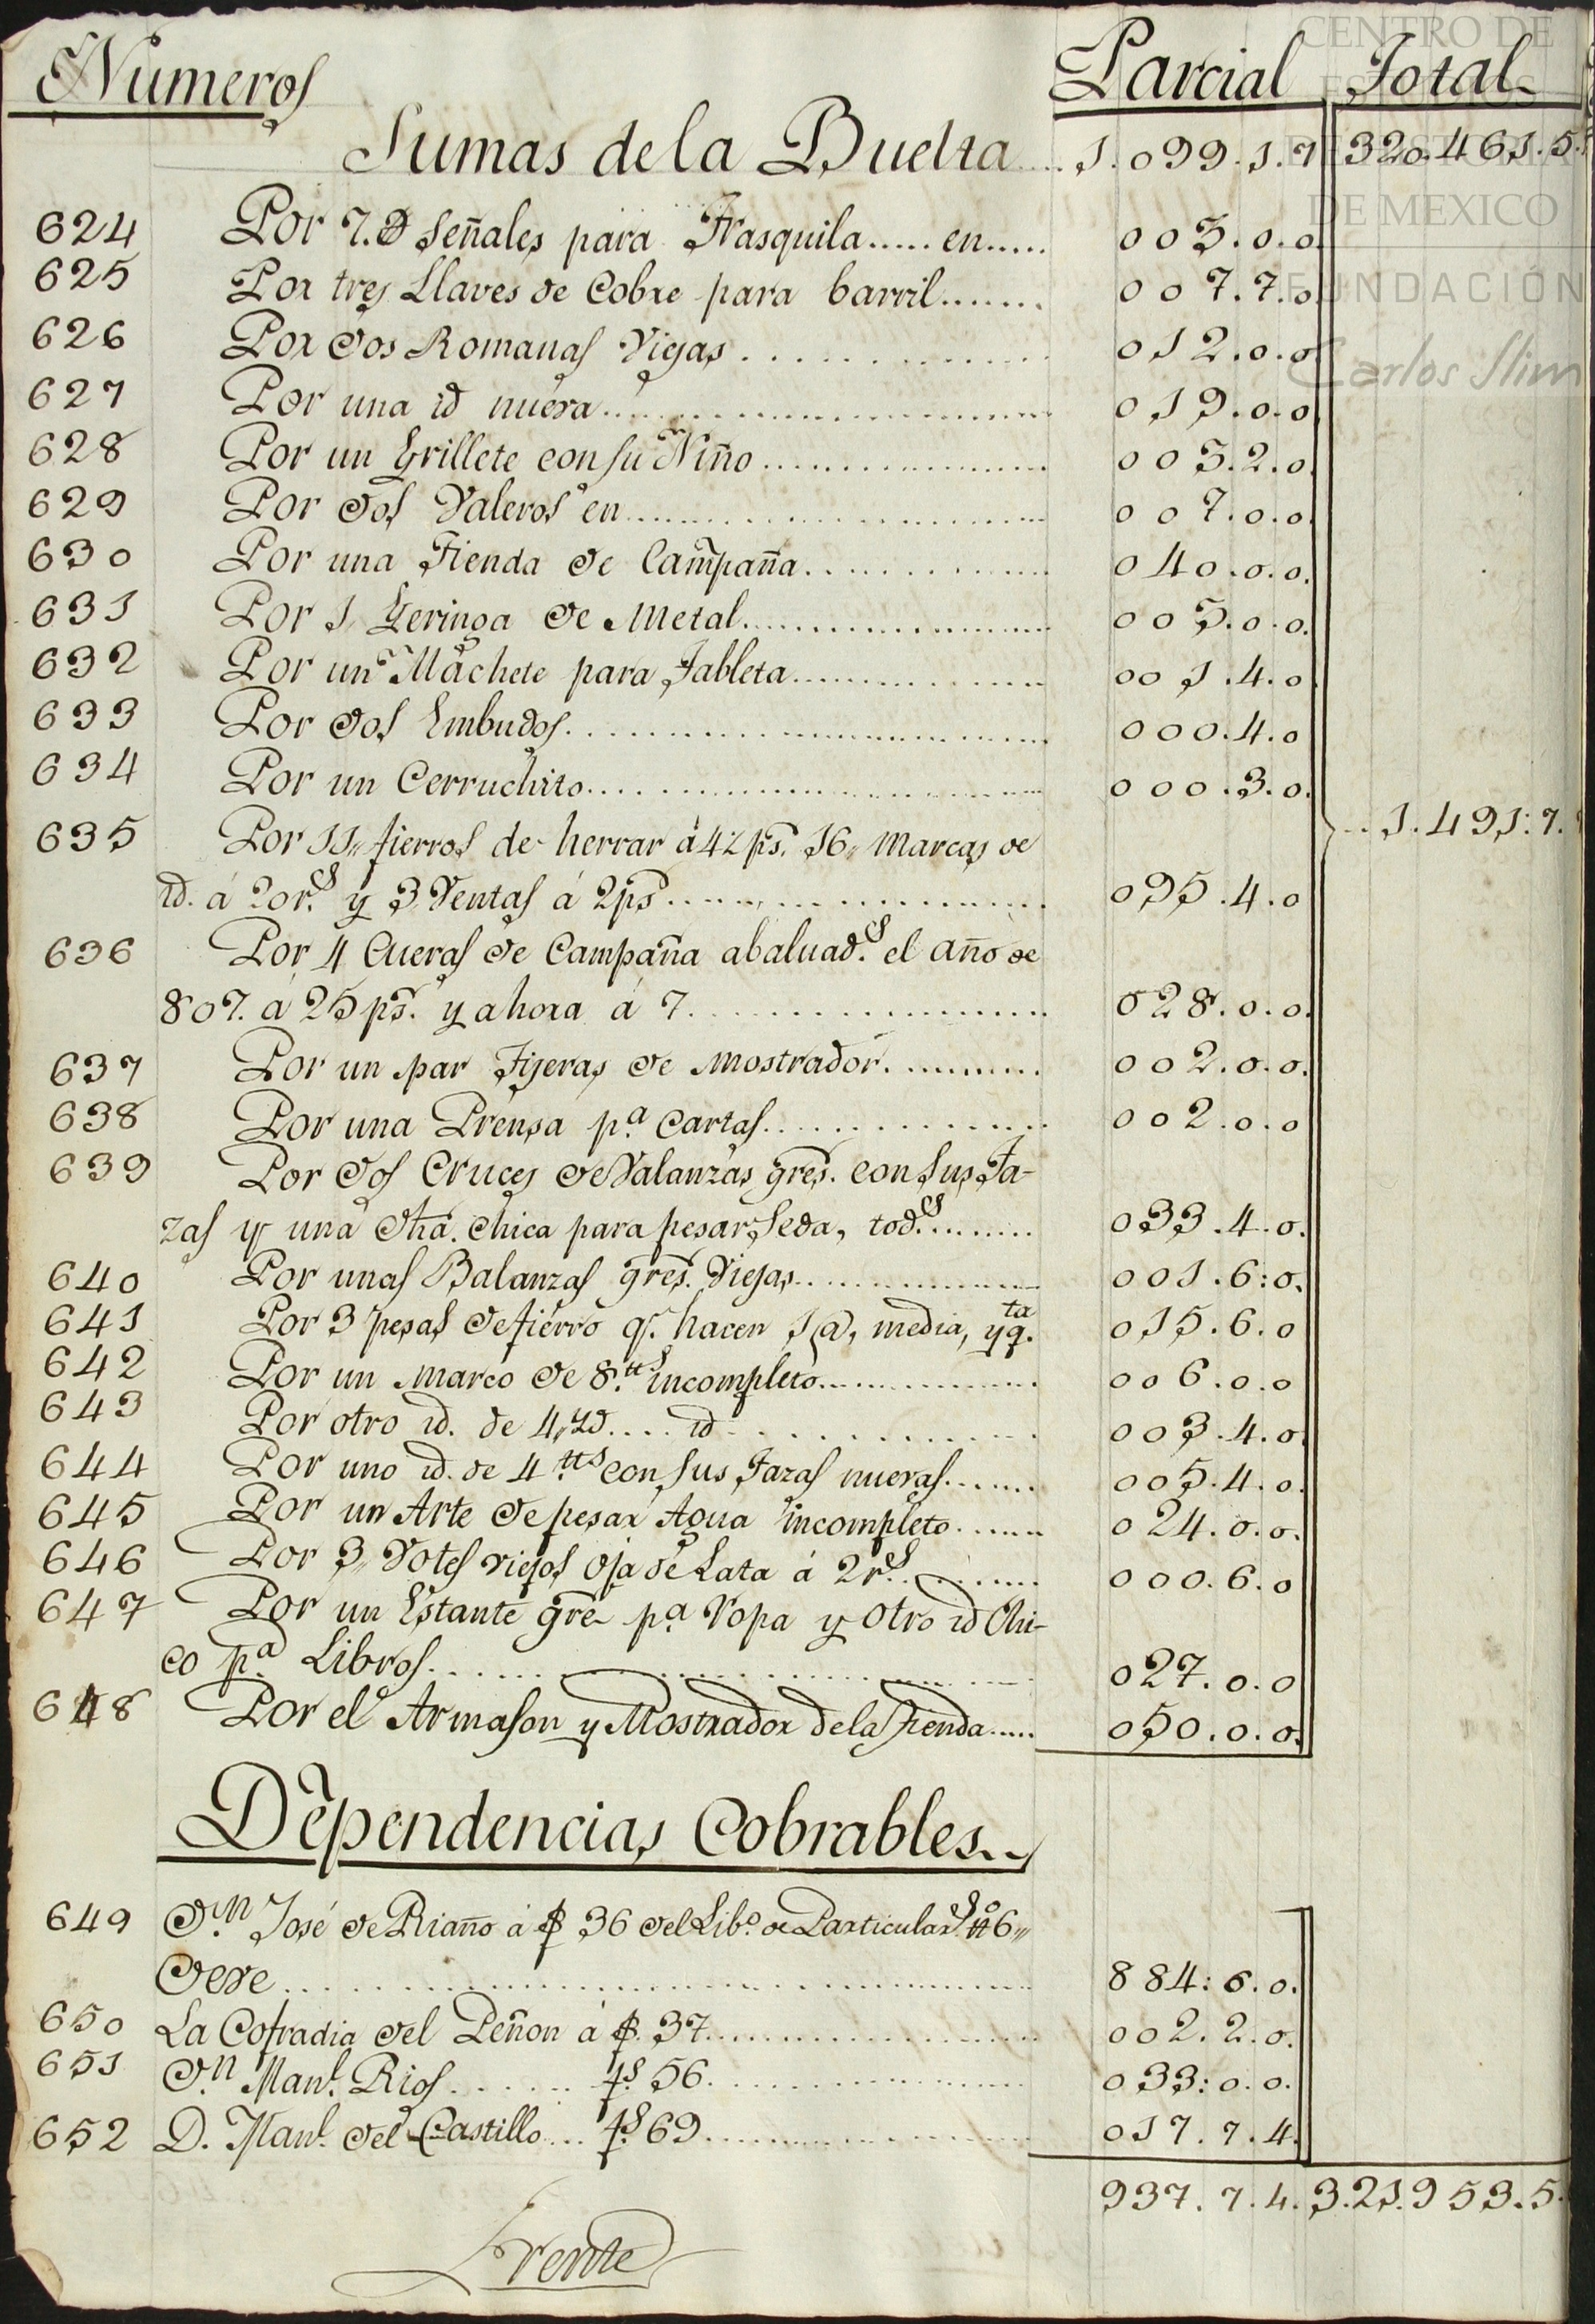 Números Parcial Total
Sumas de la Buelta.... 1.099.1.7 320.461.5.
624 Por 7. Señales para Frasquila..... en..... 003.0.0.
625 Por tres Llaves de Cobre para barril....... 007.7.0
626 Por dos Romanas Viejas ............. 012.0.0
627 Por una id nueva................. 019.0.0
628 Por un Grillete con su Niño ................. 003.2.0.
629 Por dos Valeros en................. 007.0.0
630 Por una Tienda de Campaña............. 040.0.0.
631 Por 1 Geringa de Metal................. 005.0.0.
632 Por un Machete para Tableta............... 001.4.0
633 Por dos Embudos.................... 000.4.0
634 Por un Cerruchito.................... 000.3.0.
635 Por 11,, fierros de herrar á 4½ ps. 16,, Marcas de
id. á 20 rs. y 3 Ventas á 2 ps................... 095.4.0
1.491:7.
636 Por 4 Cueras de Campaña abaluads. el año de
807. á 25 ps. y ahora á 7................... 028.0.0.
637 Por un par Tijeras de Mostrador........... 002.0.0.
638 Por una Prensa pa. Cartas............... 002.0.0
639 Por dos Cruces de Valanzas gres. con sus Ta-
zas y una Otra. chica para pesar Seda, tods......... 033.4.0.
640 Por unas Balanzas gres. Viejas............... 001.6:0.
641 Por 3 pesas de fierro q. hacen 1 @, media, y qta. 015.6.0
642 Por un Marco de 8 tts. incompleto............... 006.0.0
643 Por otro id. de 4,, id.... id ............. 003.4.0
644 Por uno id. de 4 tts. con sus Tazas nuevas....... 005.4.0.
645 Por un Arte de pesar Agua incompleto...... 024.0.0.
646 Por 3,, Votes viejos Oja de Lata á 2 rs........... 000.6.0
647 Por un Estante gre pa. Ropa y Otro id Chi-
co pa. Libros..................... 027.0.0
648 Por el Armason y Mostrador de la Tienda..... 050.0.0.
Dependencias Cobrables..
649 Dn. José de Riaño á 36 del Libo. de Particulars. 6,,
deve..................... 884:6.0.
650 La Cofradia del Peñon á 37................. 002.2.0.
651 Dn. Manl. Rios....... fs. 56................. 033:0.0.
652 D. Manl. del Castillo... fs. 69................. 017.7.4.
937.7.4. 3.21.953.5.
Frente
CENTRO DE
ESTUDIOS
DE HISTORIA
DE MEXICO
FUNDACIÓN
Carlos Slim